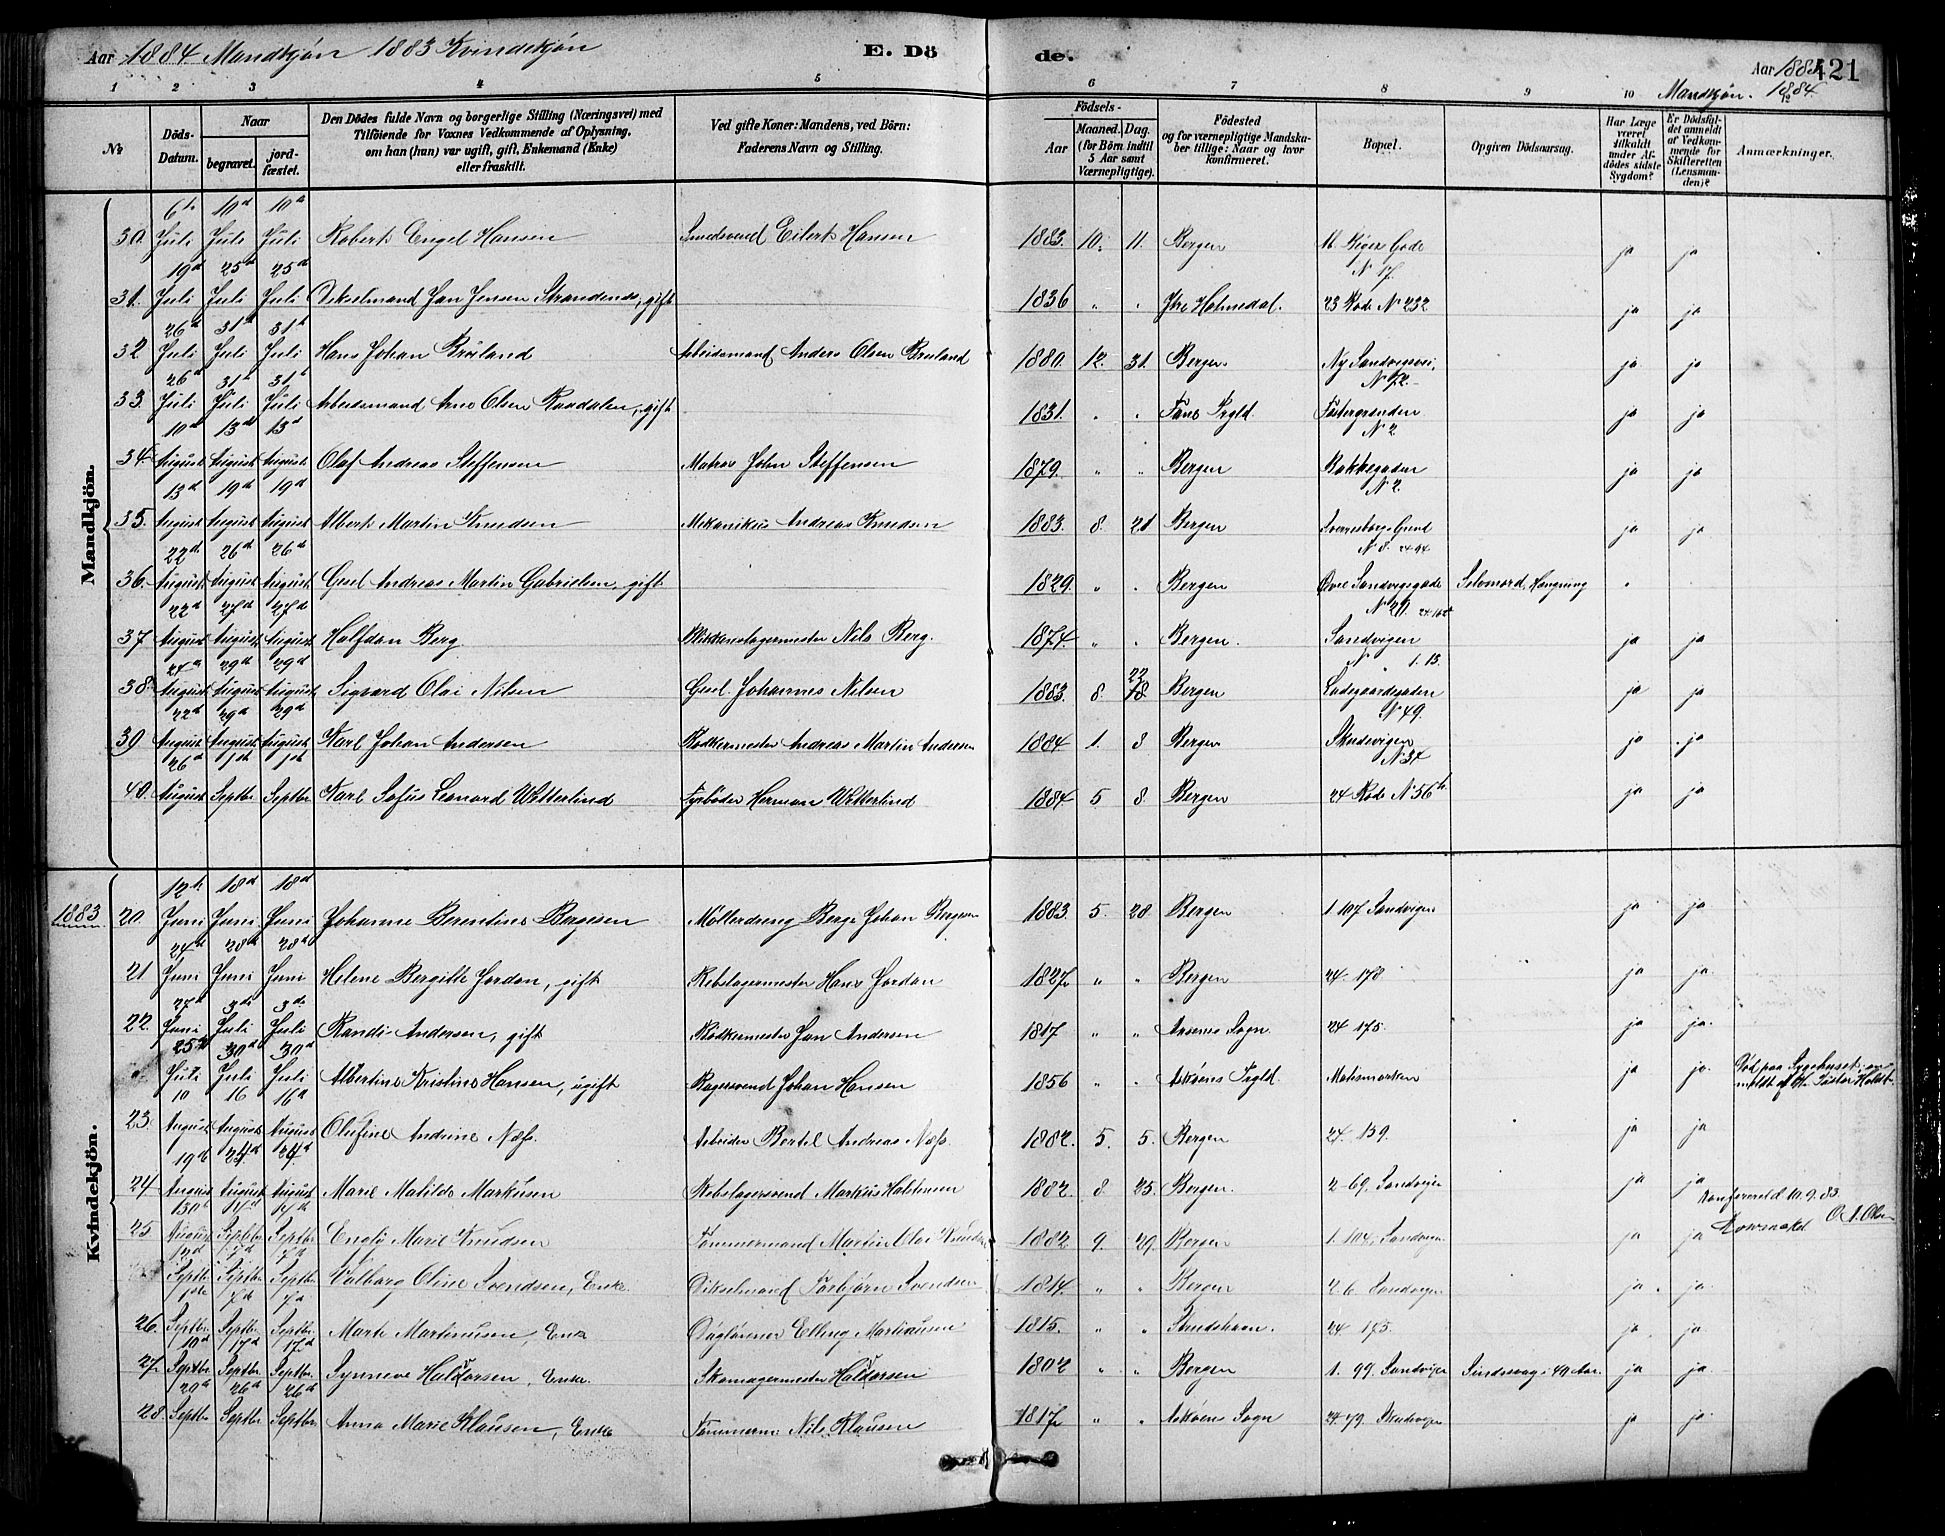 Aar 1884 Mandkjön 1883 Kvindekjön E. Dö de. Aar 1883 421
Mandkjön. 1884.
1 2 3 4 5 6 7 8 9 10 12
No Döds-Datum. Naar begravet. jordfæstet. Den Dödes fulde Navn og borgerlige Stilling (Næringsvei) med Tilföiende for Voxnes Vedkommende af Oplysning, om han (hun) var ugift, gift, Enkemand (Enke) eller fraskilt. Ved gifte Koner: Mandens, ved Börn: Faderens Navn og Stilling. Födsels- Aar Maaned. Dag. (for Börn indtil 5 Aar samt Værnepligtige). Födested og for værnepligtige Mandskaber tillige: Naar og hvor konfirmeret. Bopæl. Opgiven Dödsaarsag. Har Læge været tilkaldt under Afdödes sidste Sygdom? Er Dödsfaldet anmeldt af Vedkommende for Skifteretten (Lensmanden)? Anmærkninger.
Mandkjön.
30. 6te Juli 10d Juli 10d Juli Robert Engel Hansen Smedsvend Eilert Hansen 1883. 10. 11. Bergen N 17. ja ja
31. 19d Juli 25d Juli 25d Juli Vekselmand Jan Jensen Strandenæs, gift 1836 " " Ytre Holmedal. 23 Rode No 232 ja ja
32 26d Juli 31te Juli 31te Juli Hans Johan Bruland Arbeidsmand Anders Olsen Bruland 1880. 12. 31. Bergen. Ny Sandvigsvei, N 72. ja ja
33. 26d Juli 31te Juli 31te Juli Arbeidsmand Arne Olsen Raadalen, gift 1831. " " Fane Prgld N 2 ja ja
34. 10d August 13d August 13d August Olaf Andreas Steffensen Matros John Steffensen 1879. " " Bergen Bakkegaden N 2. ja ja
35. 13d August 19d August 19d August Albert Martin Knudsen Mekanikus Andreas Knudsen 1883. 8. 21 Bergen Sverresborgs Grund N 8. 24-94 ja ja
36. 22d August 26d August 26d August Gesel Andreas Martin Gabrielsen, gift 1829. " " Bergen Øvre Sandvigsgade N 29. Selvmord, Hængning "
37 22d August 27d August 27d August Halfdan Berg Blikkenslagermester Nils Berg. 1874. " " Bergen. Sandvigen N 1. 15. ja ja
38. 24d August 29d August 29d August Sigvard Olai Nilsen Gesel Johannes Nilsen 1883. 8. 23 18. Bergen Ladegaardsgaden N 49. ja ja
39 22d August 29d August 29d August Karl Johan Andersen Bødkermester Andreas Martin Andersen 1884 1. 8 Bergen Skudevigen N 34 ja ja
40. 26d August 1ste Septbr. 1ste Septbr. Karl Sofus Leonard Wetterlind Fyrbøder Herman Wetterlind 1884 5 8. Bergen 24 Rode No 56b. ja ja
Kvindekjön.
1883 20. 12te Juni 18d Juni 18d Juni Johanne Berentine Bergesen Möllerdreng Berge Johan Bergesen 1883. 5. 28. Bergen 1. 107 Sandvigen ja ja
21 24d Juni 28d Juni 28d Juni Helene Bergitte Jordan, gift Rebslagermester Hans Jordan 1827 " " Bergen 24-178 ja ja
22. 27d Juni 3de Juli 3de Juli Randi Andersen, gift Bødkermester Jan Andersen 1817 " " Sogn. 24-175. ja ja
25de Juli 30d Juli 30d Juli Albertine Kristine Hansen, ugift Bagersvend Johan Hansen 1856 " " Askøens Prgld. Matismarken ja ja. Død paa Sygehuset; anmeldt af Hr. Pastor Holst.
23. 10 August 16 August 16d August Olufine Andrine Næss. Arbeider Bertel Andreas Næss 1882. 5. 5. Bergen 24. 159. ja ja
24 19d August 24d August 24d August Marie Matilde Markusen Rebslagersvend Markus Halstensen 1882. 8. 25. Bergen. 2-69. Sandvigen ja ja Konfereret d. 10.9.83. O. A. Olsen
25 30te August Septbr Septbr Marie Knudsen Tømmermand Martin Olai Knudsen 1882. 9. 29. Bergen 1. 104, Sandvigen ja ja
Septbr. 7d Septbr. 7d Septbr. Valborg Oline Svendsen, Enke. Vekselmand Torbjørn Svendsen 1814. " " Bergen 2. 6. Sandvigen ja ja
26. 1ste Septbr. 7d Septbr. 7d Septbr. Marte Martinusen, Enke Dagløner Elling Martinusen 1815. " " 24-175. ja ja
27. 10d Septbr. 17d Septbr. 17d Septbr. Synneve Haldorsen, Enke. Skomagermester Haldorsen 1802 " " Bergen 1. 99. Sandvigen Sindssvag i 40 Aar. ja ja.
28. 20d Septbr 26d Septbr 26d Septbr. Anna Marie Klausen, Enke Tømmerm. Nils Klausen 1817 " " Askøens Sogn 24-49. Skudevigen ja ja.